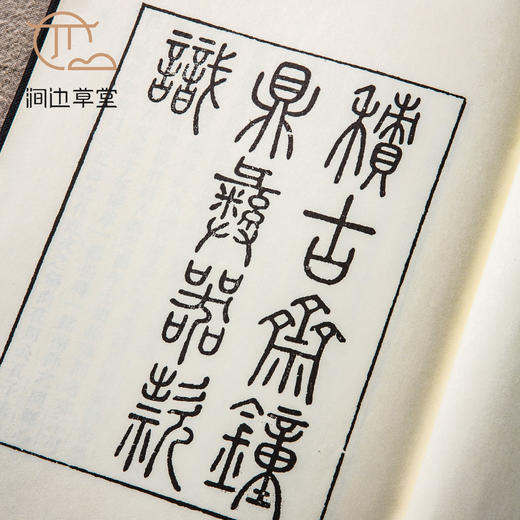 涧边草堂
積古齋鐘
鼎彝器款
識